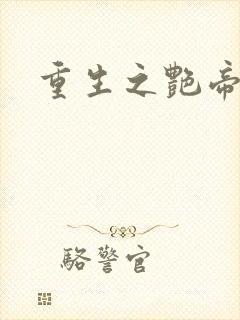 重生之艷帝
駱警官